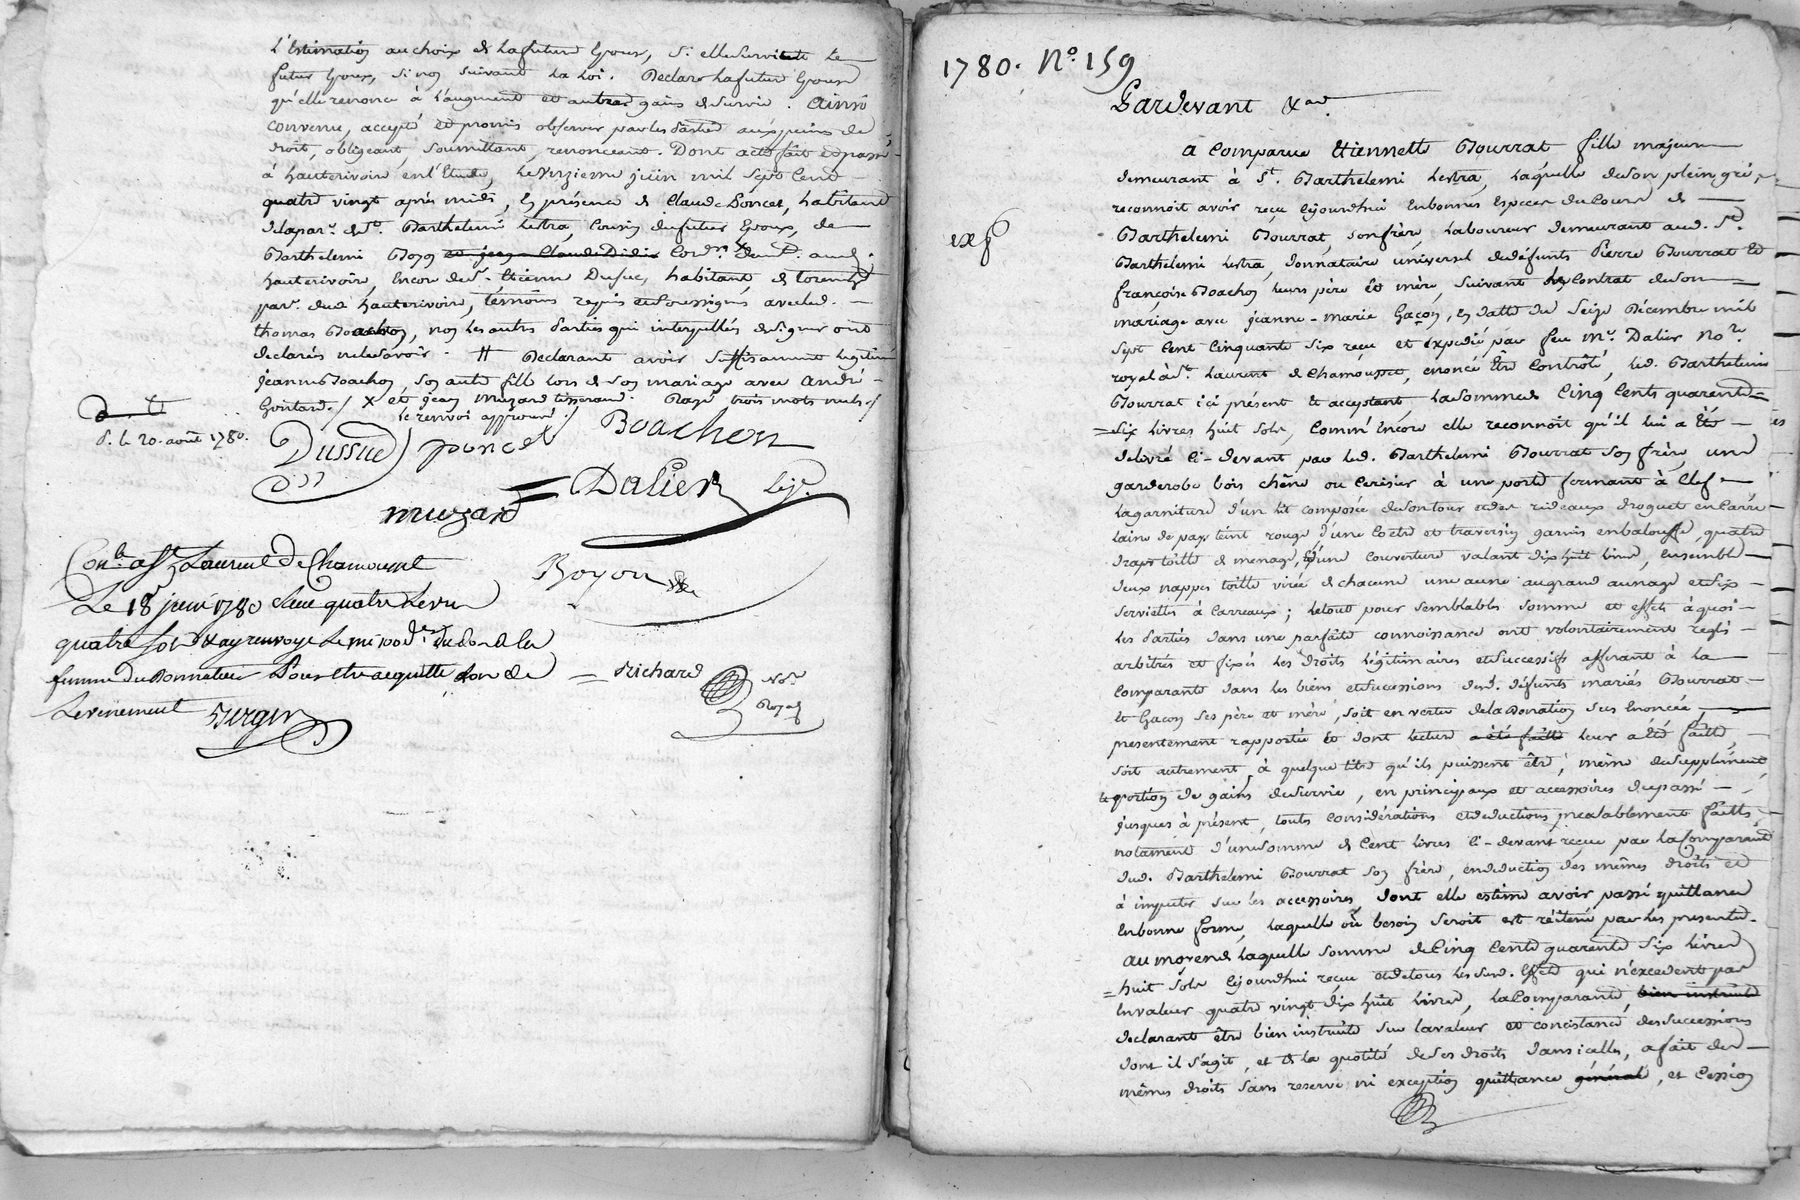 L'Estimation au choix de la future Epouse, si elle survit le
futur Epoux, si non suivant la loi. Declare la future Epouse
qu'elle renonce à l'augment et autres gains de survie. Ainsi
convenu, accepté et promis observer par les Parties aux peines de
droit, obligeant, soumittant, renonceant. Dont acte fait et passé
à hauterivoire en l'Etude, le onzieme juin mil sept cent
quatre vingt après midi, En présence de Claude Poncet, habitant
de la par. de St. Barthelemi Lestra, Cousin du futur Epoux, de
Barthelemi Boyon et jean Claude Didier Cord. demt. aud.
hauterivoire, Encor de Sr. Etienne Dussuc, habitant de
par. dud. hauterivoire, témoins requis et soussignés avec led.
thomas Boachon, non les autres Parties qui interpellés de signer ont
declarés ne le savoir. # Declarant avoir suffisamment légitimé
jeanne Boachon, son autre fille lors de son mariage avec André
Goutard./ X et jean Muzard tisserand. Rayé trois mots nuls./
le renvoi approuvé./
d. le 20. août 1780.
Dussuc poncet Boachon
Dalier
muzard
Boyon
Con.lé à St Laurent de Chamousset
Le 18 juin 1780 Reçu quatre Livres
quatre sols & ay renvoyé le mi 100e. du don de la
femme du Donnateur Pour etre acquitté lors de
L'evenement Berger
Richard Nore
Royal
1780. N°. 159
Pardevant &a.
exp
A Comparue Etiennette Bourrat fille majeure
demeurant à St. Barthelemi Lestra, laquelle de son plein gré,
reconnoit avoir reçu cejourdhui en bonnes Especes du Cours de
Barthelemi Bourrat, son frère, laboureur demeurant aud. St.
Barthelemi Lestra, donnataire universel de défunts Pierre Bourrat et
françoise Boachon leurs père et mère, suivant le Contrat de son
mariage avec jeanne-marie Gaçon, En datte du seize Décembre mil
sept cent cinquante six reçu et expedié par feu Me. Dalier Nore.
royal à St. Laurent de Chamousset, enoncé Etre Controlé, led. Barthelemi
Bourrat ici présent et acceptant la somme de Cinq Cents quarante
=six livres huit sols, Comm'encore elle reconnoit qu'il lui a Eté
delivré ci-devant par led. Barthelemi Bourrat son frère, une
garderobe bois chêne ou cerisier à une porte fermant à Clef
la garniture d'un lit composée de son tour et des rideaux droguet en Carré
laine de pays teint rouge d'une Coëtre et traversin garnis en balouffe, quatre
draps toille de menage, d'une Couverture valant dix huit livres, Ensemble
deux nappes toille virée de chacune une aune au grand aunage et six
serviettes à Carreaux; le tout pour semblables somme et effets à quoi
les Parties dans une parfaite connoissance ont volontairement réglé
arbitrés et fixés les Droits légitimaires et successifs afferant à la
Comparante dans les biens et successions desd. défunts mariés Bourrat
et Gacon ses père et mère, soit en vertu de la Donation sus Enoncée,
presentement rapportée et dont lecture a été faitte leur a été faitte,
soit autrement à quelque titre qu'ils puissent être, même du supplément,
et portion de gains de survie, en principaux et accessoires du passé
jusques à présent, toutes considérations et deductions préalablement faittes,
notament d'une somme de Cent livres ci-devant reçue par la Comparante
dud. Barthelemi Bourrat son frère, en deduction des mêmes droits et
à imputer sur les accessoires, dont elle estime avoir passé quittance
En bonne forme, laquelle où besoin seroit est réiterée par les presentes.
Au moyen de laquelle somme de Cinq Cents quarante six livres
=huit sols cejourdhui reçue et de tous les sud. Effets qui n'excedent pas
en valeur quatre vingt dix huit livres, la Comparante, bien instruite
declarant être bien instruite sur la valeur et consistance des successions
dont il s'agit, et de la quotité de ses droits dans icelles, a fait des
mêmes droits sans reserve ni exception quittance général, et Cession